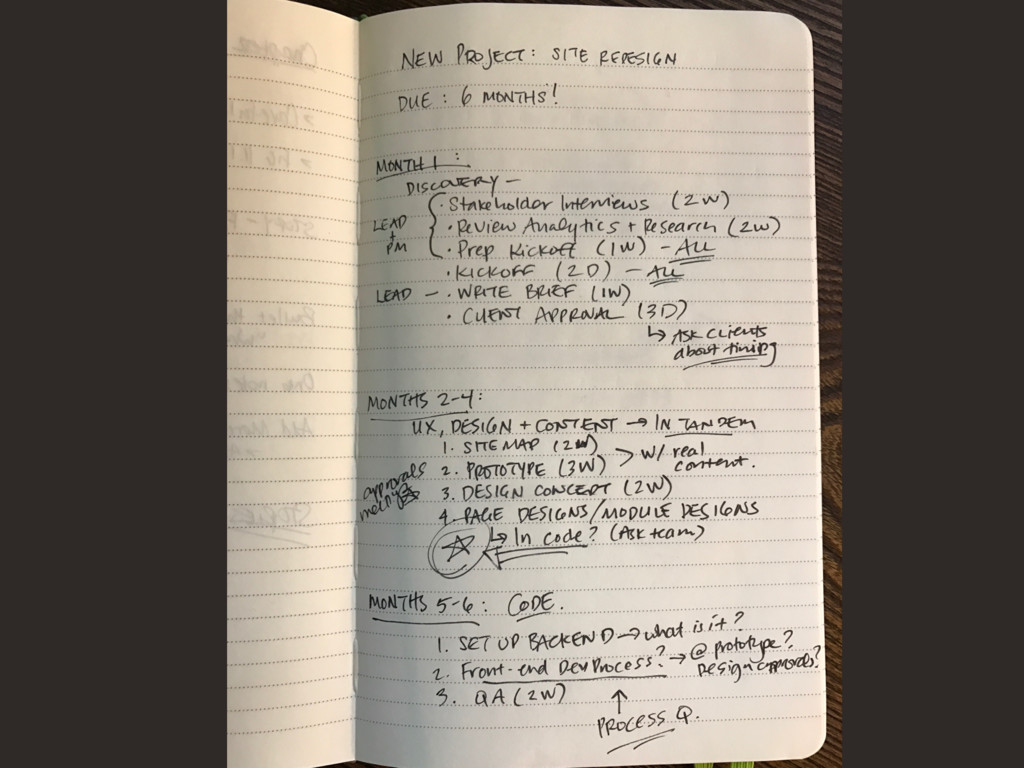 NEW PROJECT: SITE REDESIGN
DUE: 6 MONTHS!
MONTH 1:
DISCOVERY —
LEAD + PM
· Stakeholder Interviews (2W)
· Review Analytics + Research (2W)
· Prep Kickoff (1W) - ALL
· KICKOFF (2D) - ALL
LEAD - · WRITE BRIEF (1W)
· CLIENT APPROVAL (3D)
↳ ASK CLIENTS
about timing
MONTHS 2-4:
UX, DESIGN + CONTENT → IN TANDEM
1. SITEMAP (2W)
2. PROTOTYPE (3W) > w/ real content.
approvals
3. DESIGN CONCEPT (2W)
4. PAGE DESIGNS/MODULE DESIGNS
↳ In code? (Ask team)
MONTHS 5-6: CODE.
1. SET UP BACKEND → what is it?
2. Front-end Dev Process? → @ prototype?
Design approvals?
3. QA (2W)
↑
PROCESS Q.